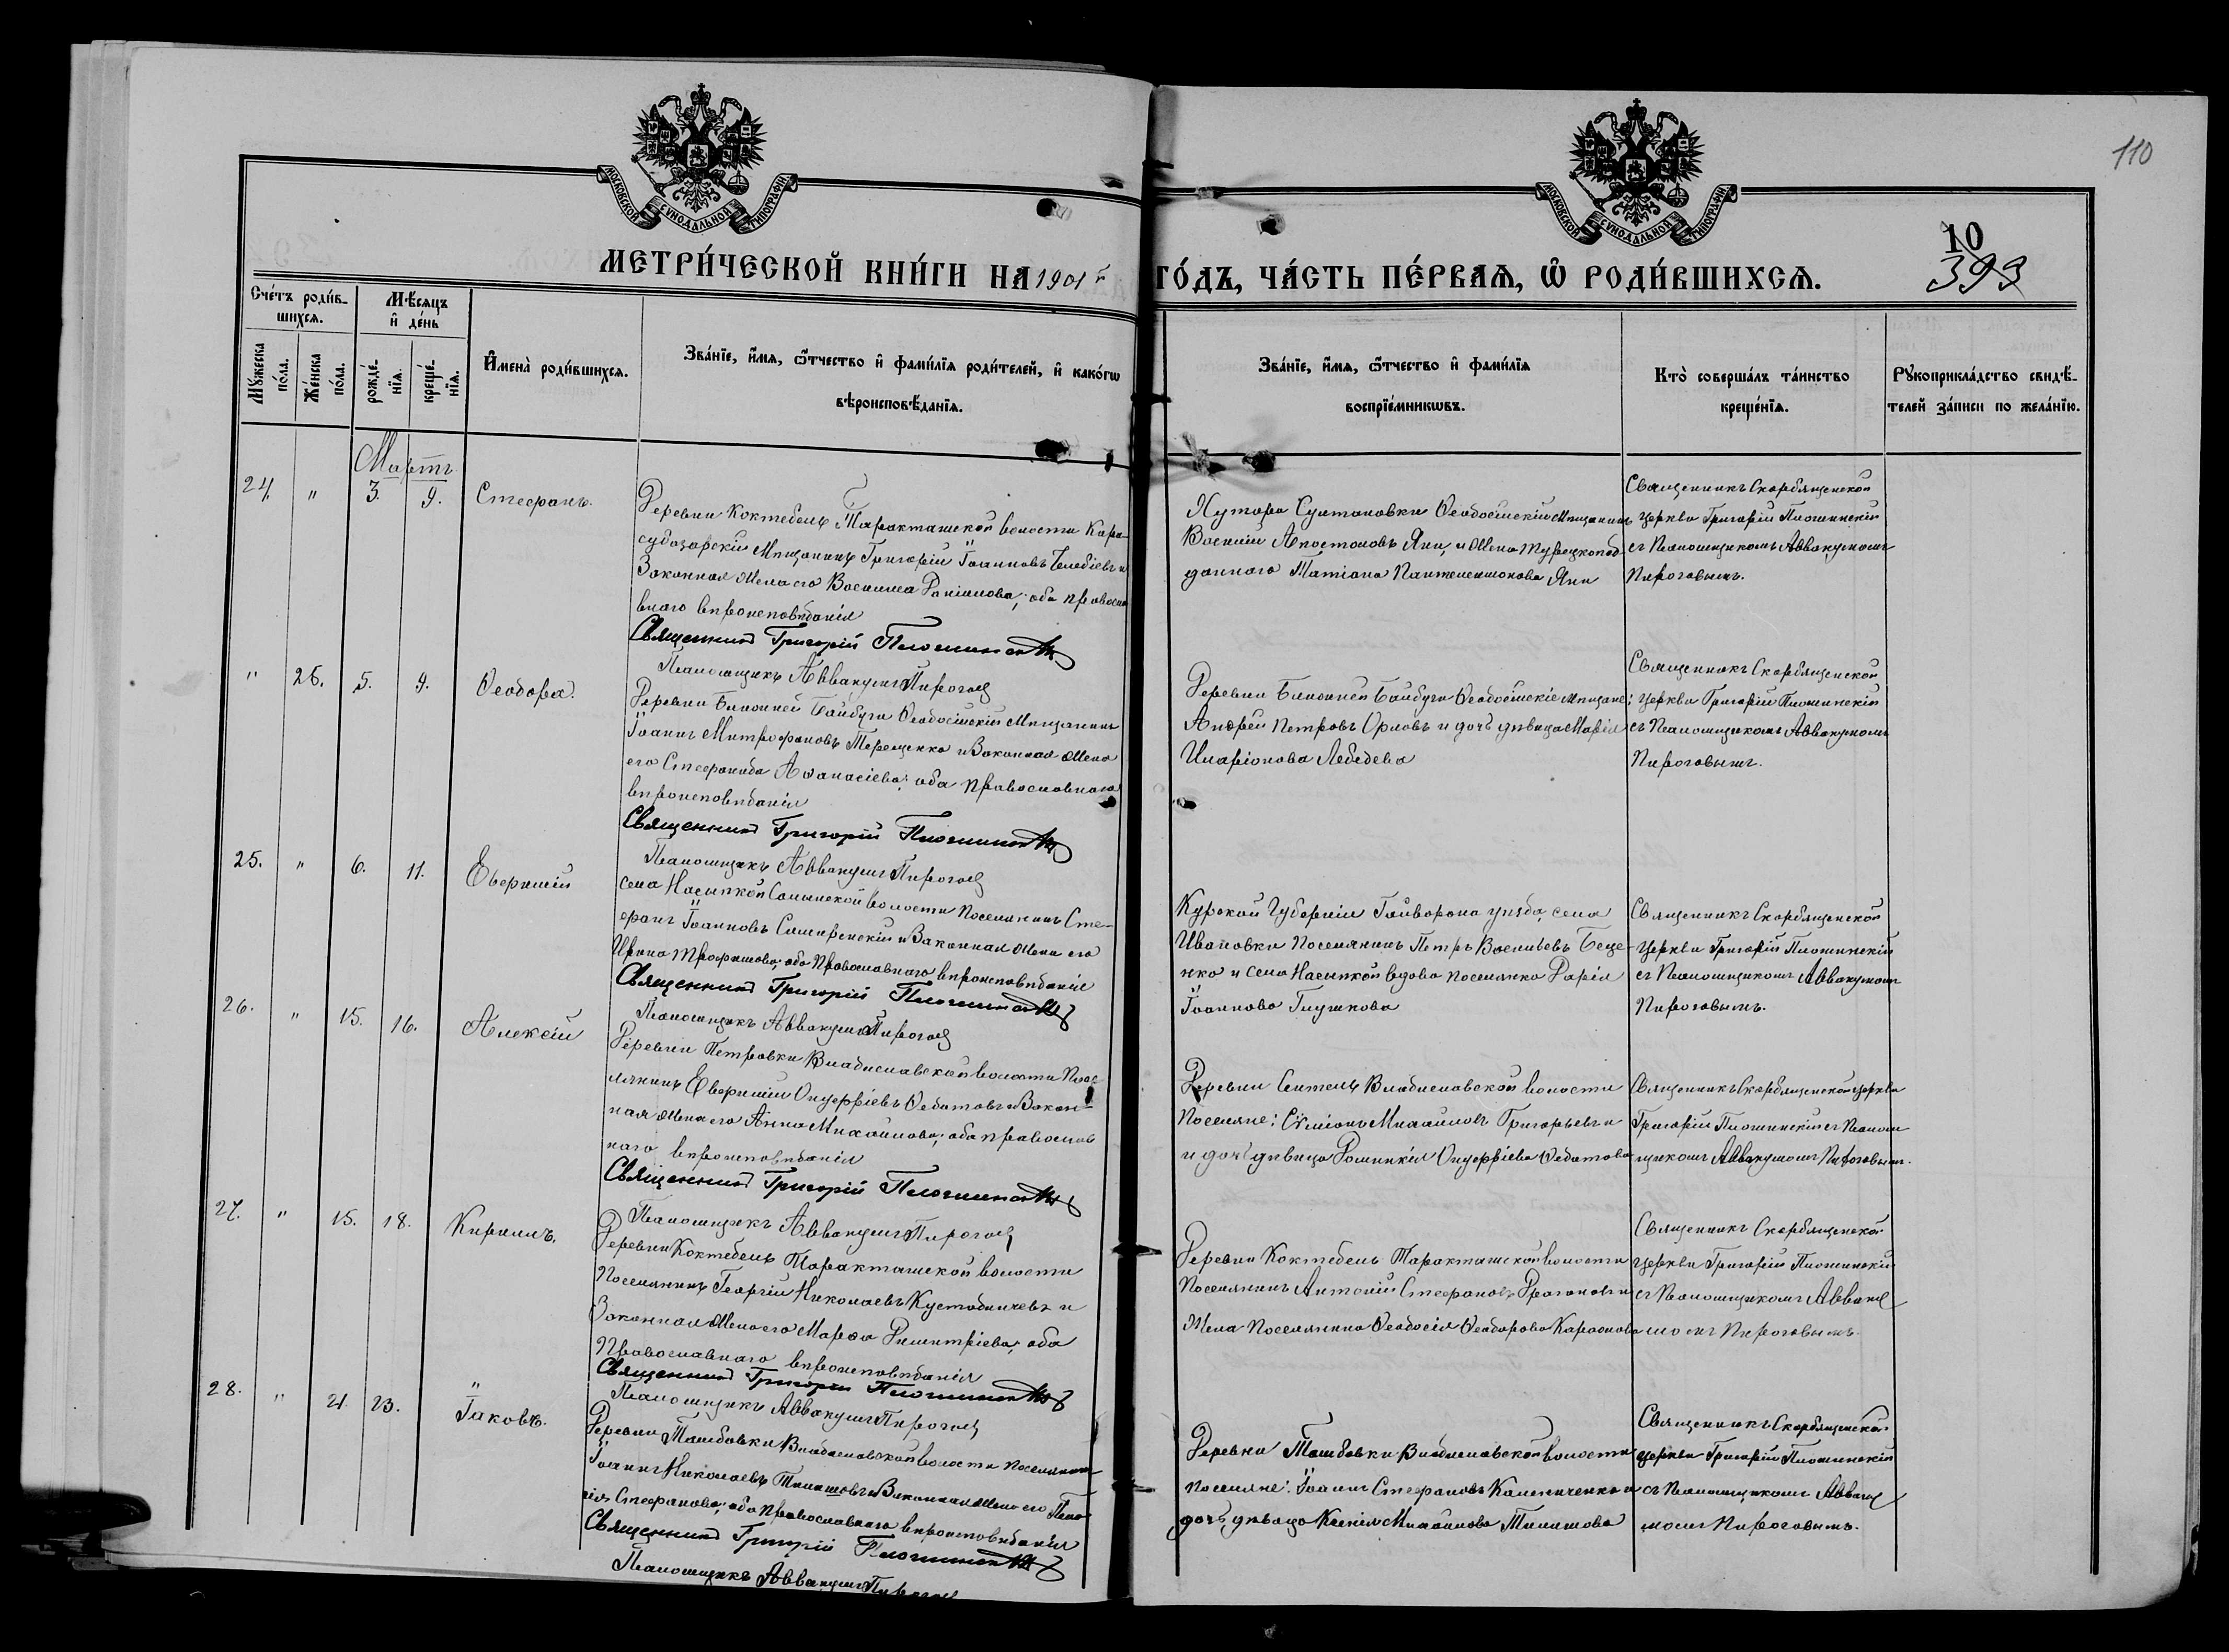 110
МОСКОВСКОЙ СУНОДАЛЬНОЙ ТИПОГРАФІИ
МОСКОВСКОЙ СУНОДАЛЬНОЙ ТИПОГРАФІИ
МЕТРИ́ЧЕСКОЙ КНИ́ГИ НА 1901 й ГО́ДЪ, ЧА́СТЬ ПЕ́РВАѦ, Ѡ҆ РОДИ́ВШИХСѦ.
10
393
Сче́тъ роди́в-
шихсѧ.
Мꙋжеска по́ла.
Же́нска по́ла.
Мѣ́сѧцъ
и҆ де́нь
рожде́-
нїѧ.
креще́-
нїѧ.
И҆мена̀ роди́вшихсѧ.
Зва́нїе, и҆́мѧ, ѻ҆́тчество и҆ фами́лїѧ роди́телей, и҆ како́гѡ
вѣроисповѣ́данїѧ.
Зва́нїе, и҆́мѧ, ѻ҆́тчество и҆ фами́лїѧ
воспрїе́мникѡвъ.
Кто̀ соверша́лъ та́инство
креще́нїѧ.
Рꙋкоприкла́дство свидѣ́-
телей за́писи по жела́нїю.
Мартъ
24. " 3. 9. Стефанъ.
Деревни Коктебель Таракташской волости Кара-
субазарскій Мѣщанинъ Григорій Іоанновъ Челебіевъ и
Законная Жена его Василиса Даніилова; оба православ
наго вѣроисповѣданія
Священникъ Григорій Плошинскій
Псаломщикъ Аввакумъ Пироговъ
Хутора Султановки Ѳеодосійскій Мѣщанинъ
Василій Апостоловъ Яни, и Жена Турецкопод-
даннаго Татіана Пантелеимонова Яни
Священникъ Скорбященской
церкви Григорій Плошинскій
съ Псаломщикомъ Аввакумомъ
Пироговымъ.
" 26. 5. 9. Ѳеодора.
Деревни Ближней Байбуги Ѳеодосійскій Мѣщанинъ
Іоаннъ Митрофановъ Терещенко и Законная Жена
его Стефанида Аѳанасіева; оба православнаго
вѣроисповѣданія
Священникъ Григорій Плошинскій
Псаломщикъ Аввакумъ Пироговъ
Деревни Ближней Байбуги Ѳеодосійскіе мѣщане:
Андрей Петровъ Орловъ и дочь дѣвица Марія
Иларіонова Лебедева
Священникъ Скорбященской
церкви Григорій Плошинскій
съ Псаломщикомъ Аввакумомъ
Пироговымъ.
25. " 6. 11. Евфимій
Села Насыпкой Салынской волости Поселянинъ Сте-
фанъ Іоанновъ и Законная Жена его
Ирина Трофимова; оба Православнаго вѣроисповѣданія
Священникъ Григорій Плошинскій
Псаломщикъ Аввакумъ Пироговъ
Курской Губерніи Гайворона уѣзда, села
Ивановки Поселянинъ Петръ Васильевъ Беце-
нко и Села Насыпкой вдова поселянка Дарія
Іоаннова Глушкова
Священникъ Скорбященской
церкви Григорій Плошинскій
съ Псаломщикомъ Аввакумомъ
Пироговымъ.
26. " 15. 16. Алексій
Деревни Петровки Владиславской волости Посе-
лянинъ Евфимій Онуфріевъ Ѳедотовъ и Закон-
ная Жена его Анна Михайлова; оба православ
наго вѣроисповѣданія
Священникъ Григорій Плошинскій
Псаломщикъ Аввакумъ Пироговъ
Деревни Сеитель Владиславской волости
Поселяне: Симіонъ Михайловъ Григорьевъ и
и дочь дѣвица Домникія Онуфріева Ѳедотова
Священникъ Скорбященской церкви
Григорій Плошинскій съ Псалом
щикомъ Аввакумомъ Пироговымъ.
27. " 15. 18. Кириллъ.
Деревни Коктебель Таракташской волости
Поселянинъ Георгій Николаевъ и
Законная Жена его Марѳа Димитріева; оба
Православнаго вѣроисповѣданія
Священникъ Григорій Плошинскій
Псаломщикъ Аввакумъ Пироговъ
Деревни Коктебель Таракташской волости
Поселянинъ Антоній Стефановъ Драгановъ и
Жена Поселянина Ѳеодосія Ѳеодорова
Священникъ Скорбященской
церкви Григорій Плошинскій
съ Псаломщикомъ Авваку
момъ Пироговымъ.
28. " 21. 23. Іаковъ.
Деревни Ташбовки Владиславской волости Поселянинъ
Іоаннъ Николаевъ и Законная Жена его Пела-
гія Стефанова; оба Православнаго вѣроисповѣданія
Священникъ Григорій Плошинскій
Псаломщикъ Аввакумъ Пироговъ
Деревни Ташбовки Владиславской волости
поселяне: Іоаннъ Стефановъ Калениченко и
дочь дѣвица Ксенія Михайлова
Священникъ Скорбященской
церкви Григорій Плошинскій
съ Псаломщикомъ Авваку
момъ Пироговымъ.